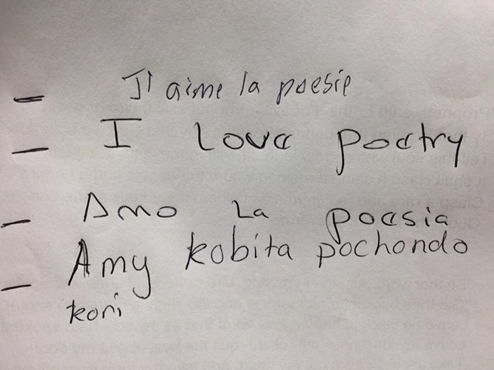 - J'aime la poesie
- I love poetry
- Amo La poesia
- Amy kobita pochondo
kori